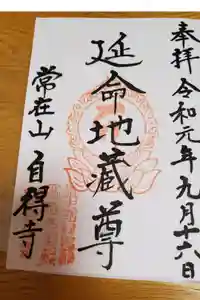 奉拝 令和元年九月十六日
延命地蔵尊
常在山 自得寺